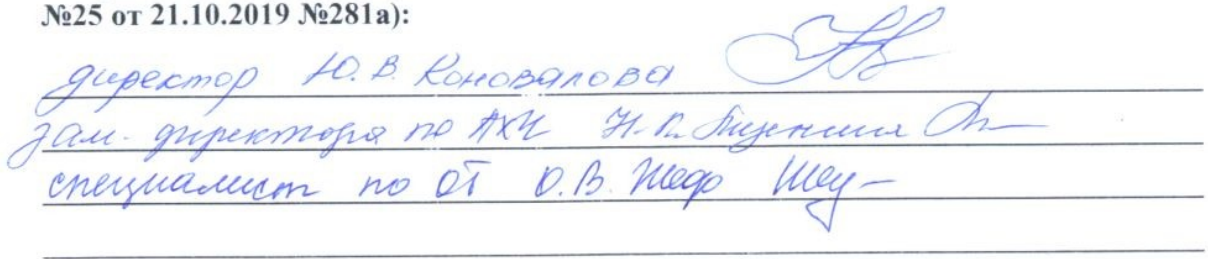 №25 от 21.10.2019 №281а):
директор Ю.В. Коновалова
зам. директора по АХЧ Н.П.
специалист по ОТ О.В.